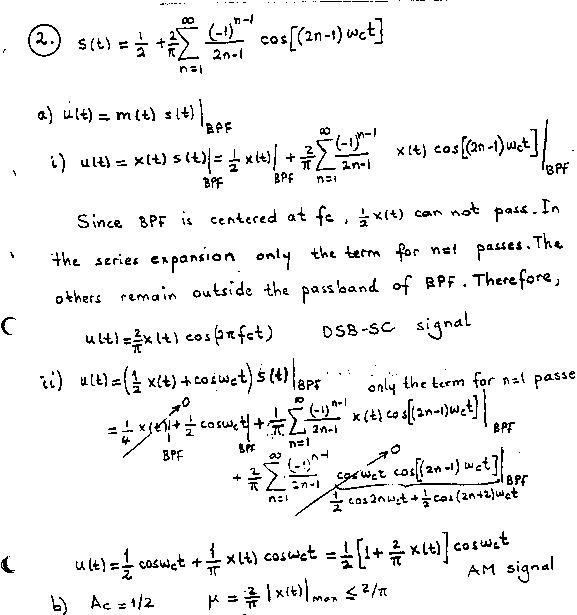 2. s(t) = 1/2 + 2/π ∑_{n=1}^{∞} (-1)^{n-1}/(2n-1) cos[(2n-1)ω_c t]
a) u(t) = m(t) s(t)|_{BPF}
i) u(t) = x(t) s(t)|_{BPF} = 1/2 x(t)|_{BPF} + 2/π ∑_{n=1}^{∞} (-1)^{n-1}/(2n-1) x(t) cos[(2n-1)ω_c t]|_{BPF}
Since BPF is centered at f_c, 1/2 x(t) can not pass. In
the series expansion only the term for n=1 passes. The
others remain outside the passband of BPF. Therefore,
u(t) = 2/π x(t) cos(2πf_c t) DSB-SC signal
ii) u(t) = (1/2 x(t) + cosω_c t) s(t)|_{BPF} only the term for n=1 passe
= 1/4 x(t)|_{BPF} → 0 + 1/2 cosω_c t|_{BPF} + 1/π ∑_{n=1}^{∞} (-1)^{n-1}/(2n-1) x(t) cos[(2n-1)ω_c t]|_{BPF}
+ 2/π ∑_{n=1}^{∞} (-1)^{n-1}/(2n-1) cosω_c t cos[(2n-1)ω_c t]|_{BPF} → 0
1/2 cos2nω_c t + 1/2 cos(2n+2)ω_c t
u(t) = 1/2 cosω_c t + 1/π x(t) cosω_c t = 1/2 [1 + 2/π x(t)] cosω_c t
AM signal
b) A_c = 1/2 μ = 2/π |x(t)|_{max} ≤ 2/π